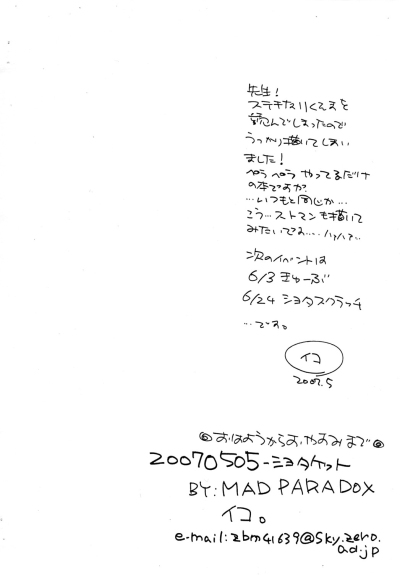 先生!
ステキな
読んでしまったので
うっかり描いてしまい
ました!
ペラペラ やってるだけ
の本ですが?
…いつもと同じか…
こう…ストマンも描いて
みたいです…ハァハァ…
次のイベントは
6/3 きゅーぶ
6/24 ショタスクラッチ
…です。
イコ
2007.5
◎おはようからおやすみまで◎
20070505-ショタケット
BY: MAD PARADOX
イコ。
e-mail: zbm41639@sky.zero.
ad.jp